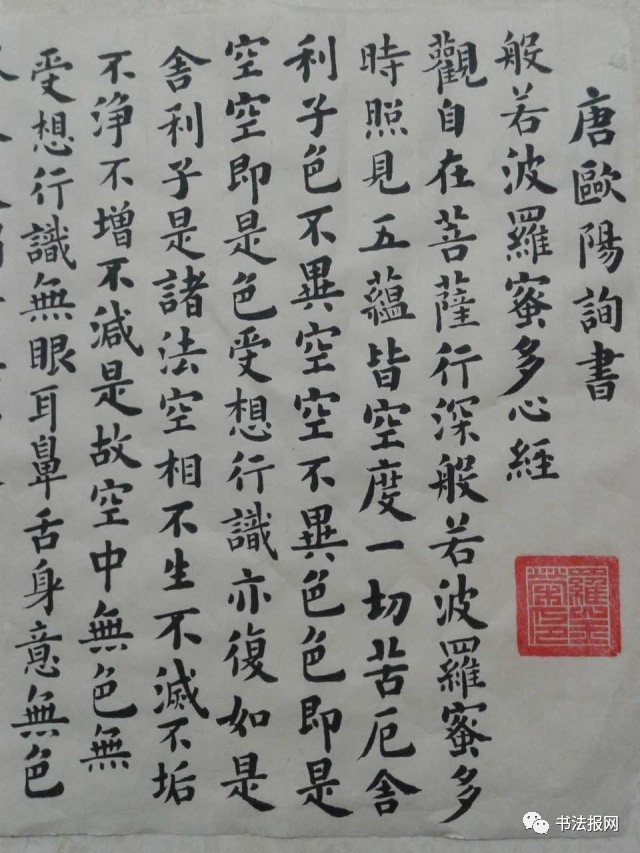 唐歐陽詢書
般若波羅蜜多心經
觀自在菩薩行深般若波羅蜜多
時照見五蘊皆空度一切苦厄舍
利子色不異空空不異色色即是
空空即是色受想行識亦復如是
舍利子是諸法空相不生不滅不垢
不淨不增不減是故空中無色無
受想行識無眼耳鼻舌身意無色
书法报网